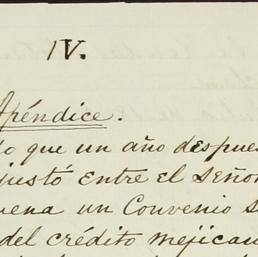 IV.
Apéndice.
do que un año despues
justó entre el Señor
uena un Convenio s
del crédito mejican